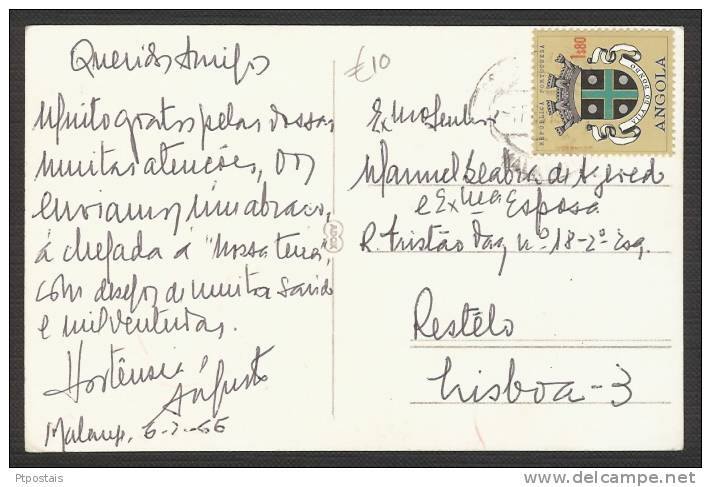 Queridos Amigos
Muito gratos pelas vossas
muitas atenções, vos
enviamos um abraço,
á chegada á "nossa terra",
com desejos de muita saúde
e mil venturas.
Hortênsia
Augusto
6-7-66
£10
Exmo Senhor
Manuel Seabra de Azevedo
e Exma Esposa
R. Tristão Vaz nº 18-2º Esq.
Restêlo
Lisboa-3
REPÚBLICA PORTUGUESA
1$80
VILA DO DONDO
ANGOLA
ADOX
Ptpostais
delcampe.net